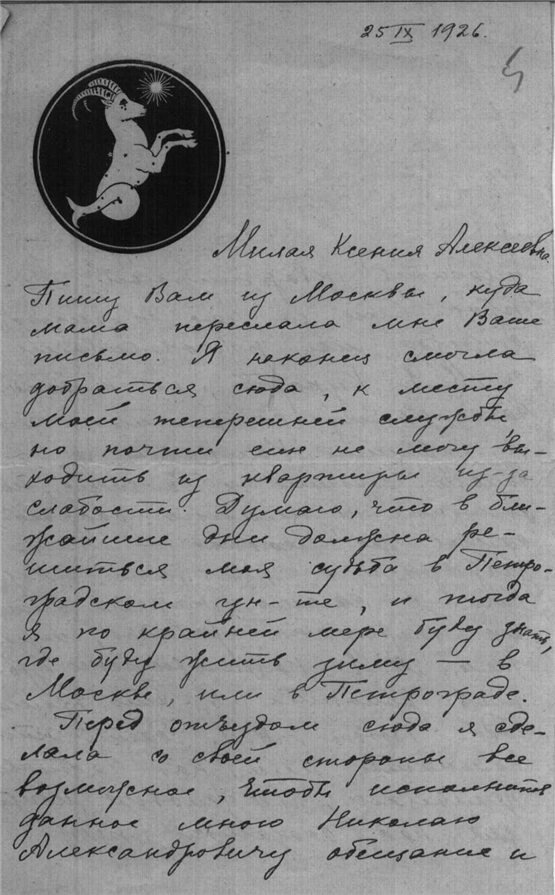 25 IX 1926.
Милая Ксения Алексеевна.
Пишу Вам из Москвы, куда
мама переслала мне Ваше
письмо. Я наконец смогла
добраться сюда, к месту
моей теперешней службы,
но почти еще не могу вы-
ходить из квартиры из-за
слабости. Думаю, что в бли-
жайшие дни должна ре-
шиться моя судьба в Петро-
градском ун-те, и тогда
я по крайней мере буду знать,
где буду жить зиму — в
Москве, или в Петрограде.
Перед отъездом сюда я сде-
лала со своей стороны все
возможное, чтобы исполнить
данное мною Николаю
Александровичу обещание и